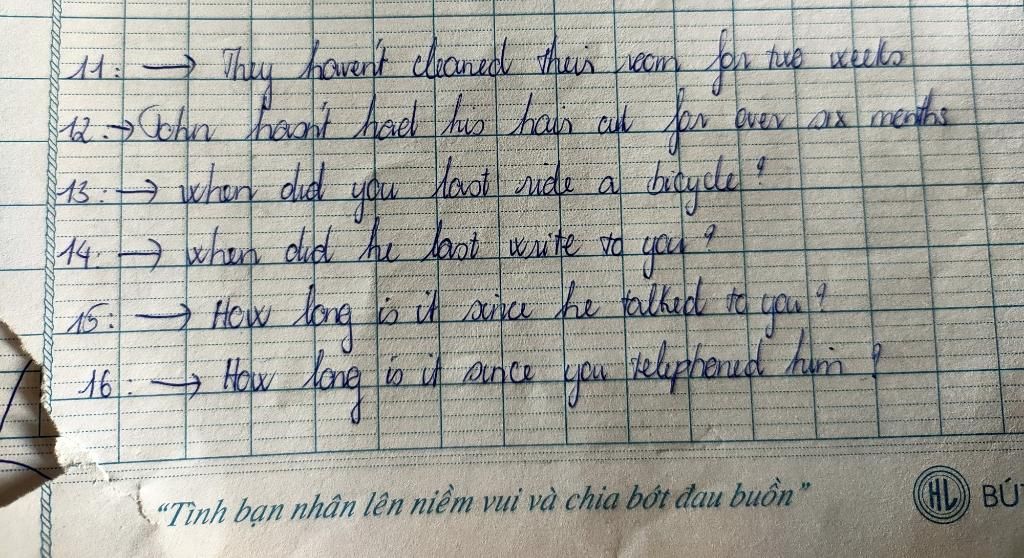 11: → They haven't cleaned their room for two weeks
12: → John hasn't had his hair cut for over six months
13: → when did you last ride a bicycle?
14: → when did he last write to you?
15: → How long is it since he talked to you?
16: → How long is it since you telephoned him?
“Tình bạn nhân lên niềm vui và chia bớt đau buồn” HL BÚT